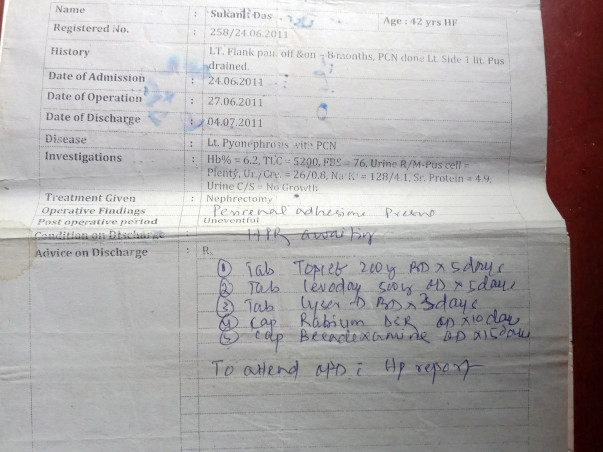 Name : Sukanti Das Age : 42 yrs HF
Registered No. : 258/24.06.2011
History : LT. Flank pain off &on – 8 months, PCN done Lt. Side 1 lit. Pus
drained.
Date of Admission : 24.06.2011
Date of Operation : 27.06.2011
Date of Discharge : 04.07.2011
Disease : Lt. Pyonephrosis with PCN
Investigations : Hb% = 6.2, TLC = 5200, FBS = 76, Urine R/M-Pus cell =
Plenty, Ur./Cre. = 26/0.8, Na⁺K⁺ = 128/4.1, Sr. Protein = 4.9,
Urine C/S = No Growth
Treatment Given : Nephrectomy
Operative Findings Perirenal adhesions
Post operative period : Uneventful
Condition on Discharge : HPR awaiting
Advice on Discharge : R,
① Tab 200g BD x 5 days
② Tab Levoday 500g OD x 5 days
③ Tab Lyser D BD x days
④ Cap Rabium DSR OD x 10 days
⑤ Cap BD x 15 days
To attend OPD c̄ Hp report